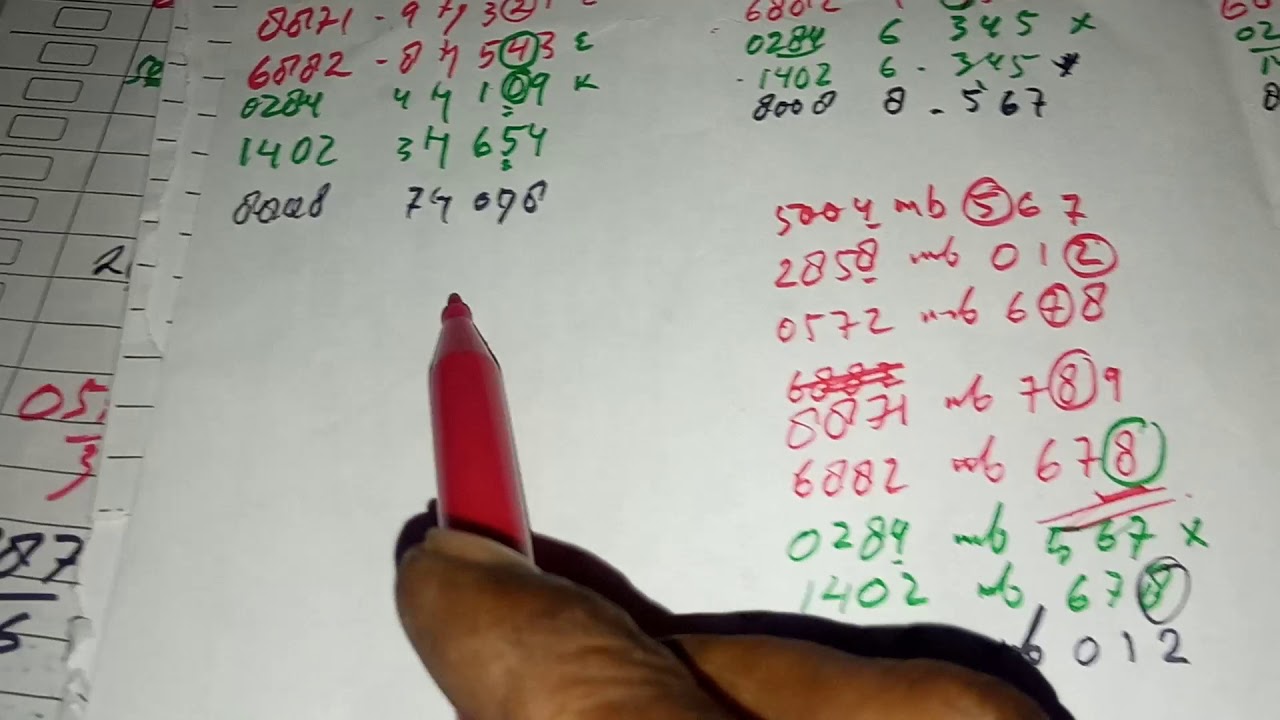 6882 - 8 4 5 4 3 ε
0284 4 4 1 0 9 K
1402 3 4 6 5 4
8008 7 4 0 9 8
2
05
3
87
5
0284 6 345 x
1402 6 - 345 x
8008 8 - 567
5004 mb 5 6 7
2858 mb 0 1 2
0572 mb 6 7 8
8871 mb 7 8 9
6882 mb 6 7 8
0284 mb 5 6 7 x
1402 mb 6 7 8
mb 0 1 2